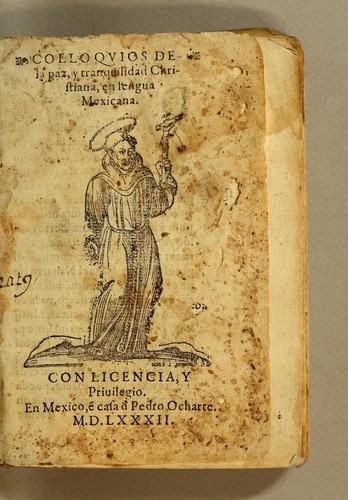 COLLOQVIOS DE-
la paz, y tranquilidad Chri-
stiana, en lengua
Mexicana.
CON LICENCIA, Y
Priuilegio.
En Mexico, ẽ casa ď Pedro Ocharte.
M.D.LXXXII.